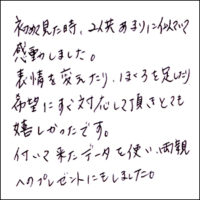 初めて見た時、2人共あまりに似ていて
感動しました。
表情を変えたり、ほくろを足したり
希望にすぐ対応して頂きとても
嬉しかったです。
付いて来たデータを使い、両親
へのプレゼントにもしました。